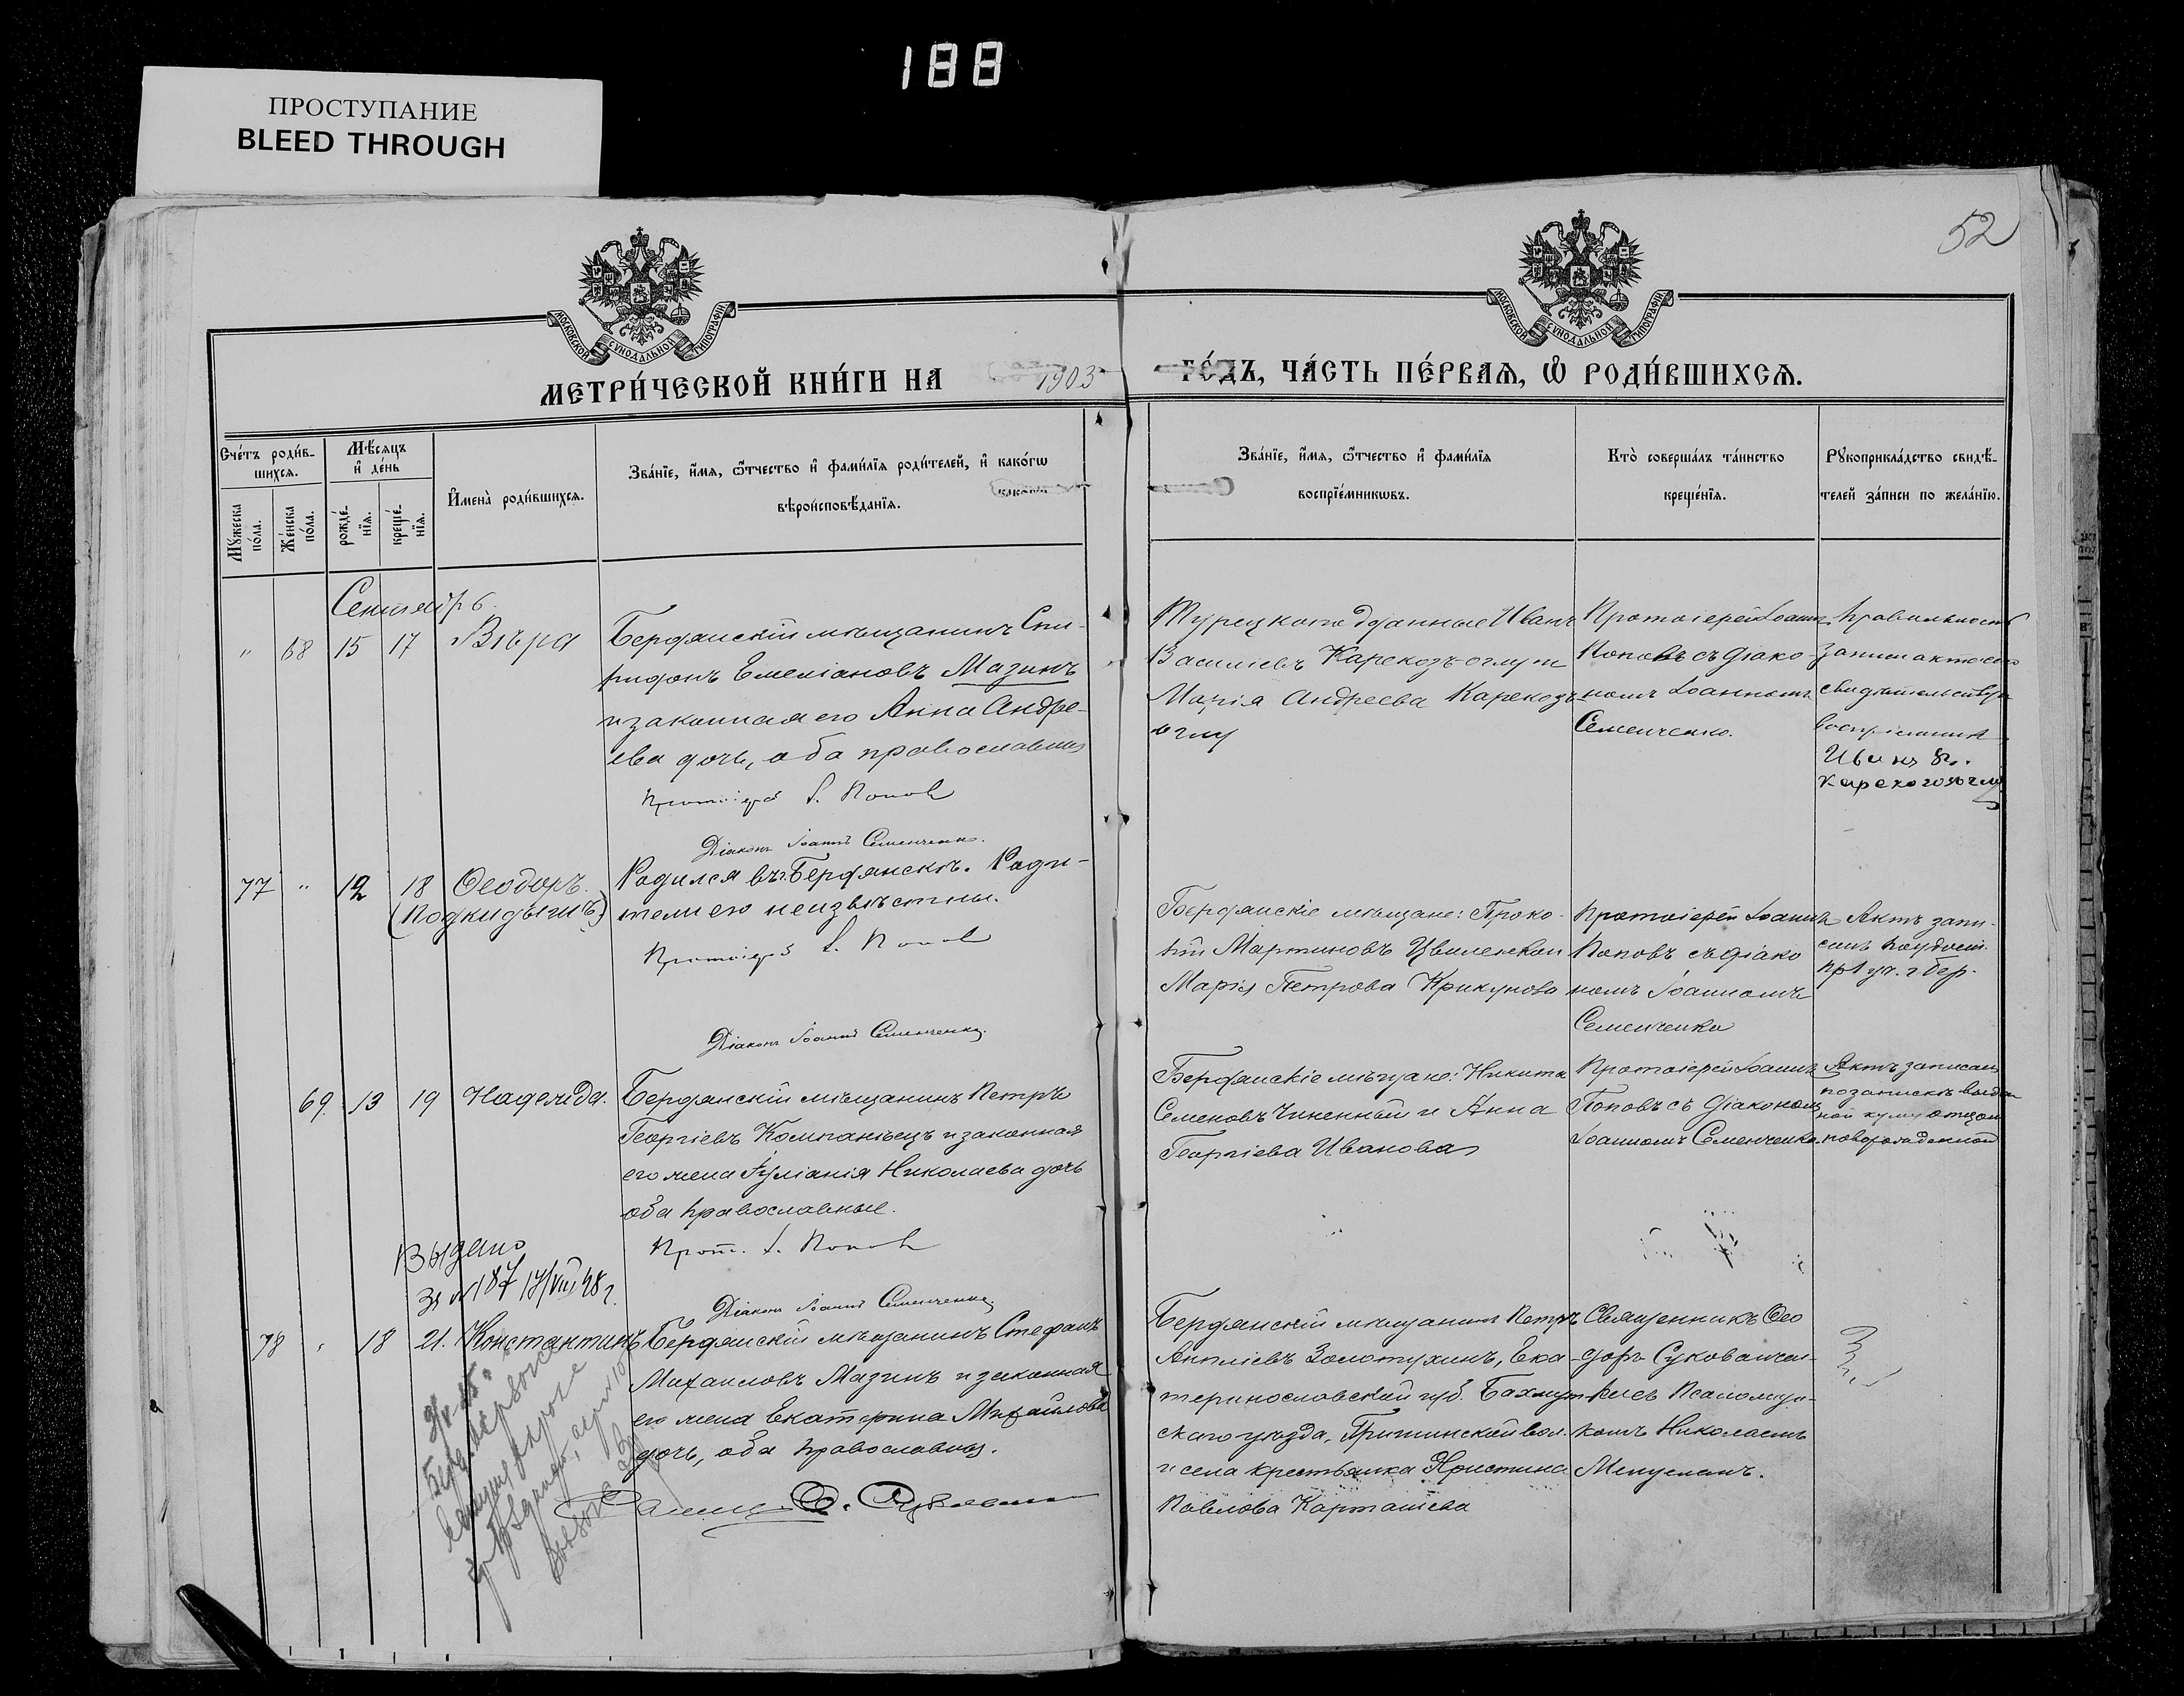 188
ПРОСТУПАНИЕ
BLEED THROUGH
52
МОСКОВСКОЙ СѴНОДАЛЬНОЙ ТИПОГРАФІИ
МОСКОВСКОЙ СѴНОДАЛЬНОЙ ТИПОГРАФІИ
МЕТРИ́ЧЕСКОЙ КНИ́ГИ НА 1903
ГО́ДЪ, ЧА́СТЬ ПЕ́РВАЯ, Ѡ҆ РОДИ́ВШИХСѦ.
Сче́тъ роди́в-
шихся.
Мѣ́сяцъ
и҆ де́нь
Мꙋ́жеска
по́ла.
Же́нска
по́ла.
рожде́-
нїя.
креще́-
нїя.
И҆мена̀ роди́вшихся.
Зва́нїе, и҆́мя, ѻ҆́тчество и҆ фами́лїя роди́телей, и҆ како́гѡ
вѣроисповѣ́данїя.
Зва́нїе, и҆́мя, ѻ҆́тчество и҆ фами́лїя
воспрїе́мникѡвъ.
Кто̀ соверша́лъ та́инство
креще́нїя.
Рꙋкоприкла́дство свидѣ́-
телей за́писи по жела́нїю.
Сентябрь
" 68 15 17 Вѣра
Бердянскій мѣщанинъ Спи-
ридонъ Емеліановъ Мазинъ
и законная его Анна Андре-
ева дочь, оба православные
Протоіерей І. Попов
Діаконъ Іоаннъ Семенченко.
Турецкоподданные Иванъ
Василіевъ Карекозъ-оглу и
Марія Андреева Карекозъ-
оглу
Протоіерей Іоаннъ
Поповъ съ діако-
номъ Іоанномъ
Семенченко.
Правильность
записи акта сего
свидѣтельствую
воспріемникъ
Иванъ В.
Карекозоглу
77 " 12 18 Ѳеодоръ.
(Подкидышъ)
Родился въ г. Бердянскѣ. Роди-
тели его неизвѣстны.
Протоіерей І. Попов
Діаконъ Іоаннъ Семенченко.
Бердянскіе мѣщане: Проко-
пій Мартиновъ Цвиленкои
Марія Петрова Крикунова
Протоіерей Іоаннъ
Поповъ съ діако
номъ Іоанномъ
Семенченко
Актъ запи-
санъ по удост.
69. 13 19 Надежда.
Бердянскій мѣщанинъ Петръ
Георгіевъ Компаніецъ и законная
его жена Іуліанія Николаева дочь
оба православные.
Прот. І. Попов
Діаконъ Іоаннъ Семенченко.
Бердянскіе мѣщане: Никита
Семеновъ Чиненный и Анна
Георгіева Иванова
Протоіерей Іоаннъ
Поповъ съ діакономъ
Іоанномъ Семенченко.
Актъ записанъ
по запискѣ выдан
ной куму отцомъ
новорожденной
Выдано
за № 187 17/VIII 48 г.
78 " 18 21. Константинъ
Бердянскій мѣщанинъ Стефанъ
Михаиловъ Мазинъ и законная
его жена Екатерина Михайлова
дочь, оба православные.
Бердянскій мѣщанинъ Петръ
Антліевъ Золотухинъ, Ека-
теринославской губ. Бахмут-
скаго уѣзда, Гришинской вол.
и села крестьянка Христина
Павлова Карташева
Священникъ Ѳео
доръ
съ Псаломщи-
комъ Николаемъ